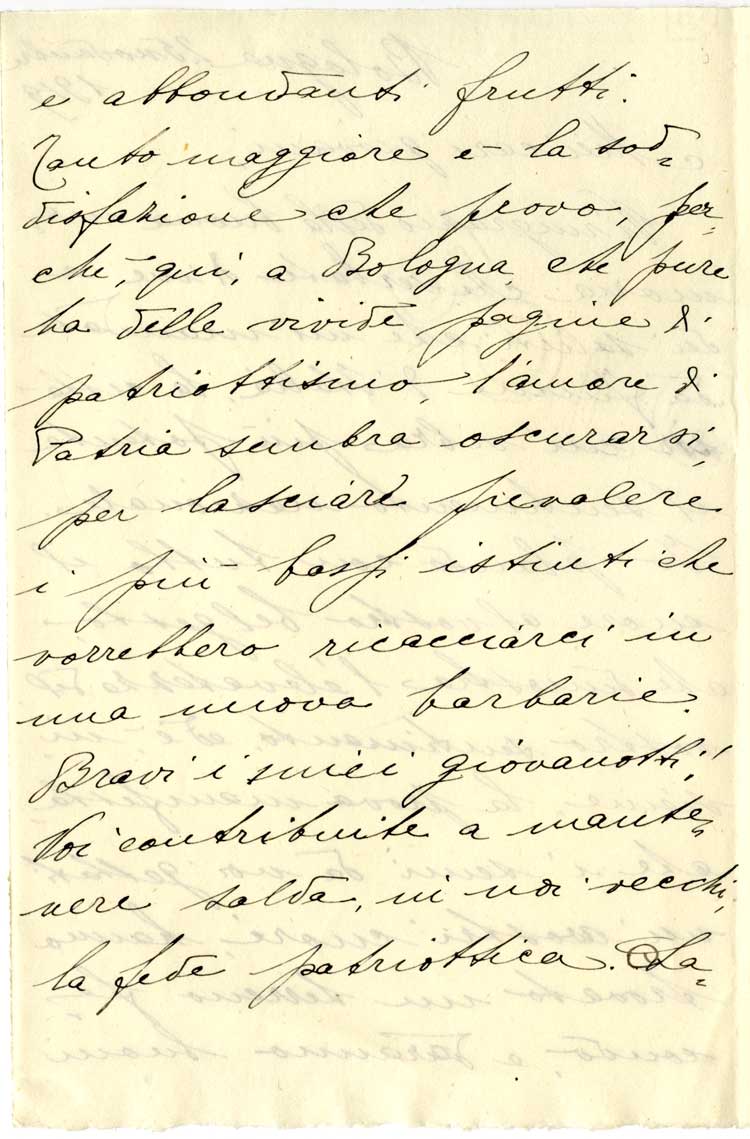 e abbondanti frutti.
Tanto maggiore è la sod-
disfazione che provo, per-
chè, qui, a Bologna, che pure
ha delle vivide pagine di
patriottismo, l'amore di
Patria sembra oscurarsi,
per lasciare prevalere
i più bassi istinti che
vorrebbero ricacciarci in
una nuova barbarie.
Bravi i miei giovanotti!
Voi contribuite a mante-
nere salda, in noi vecchi,
la fede patriottica. La-